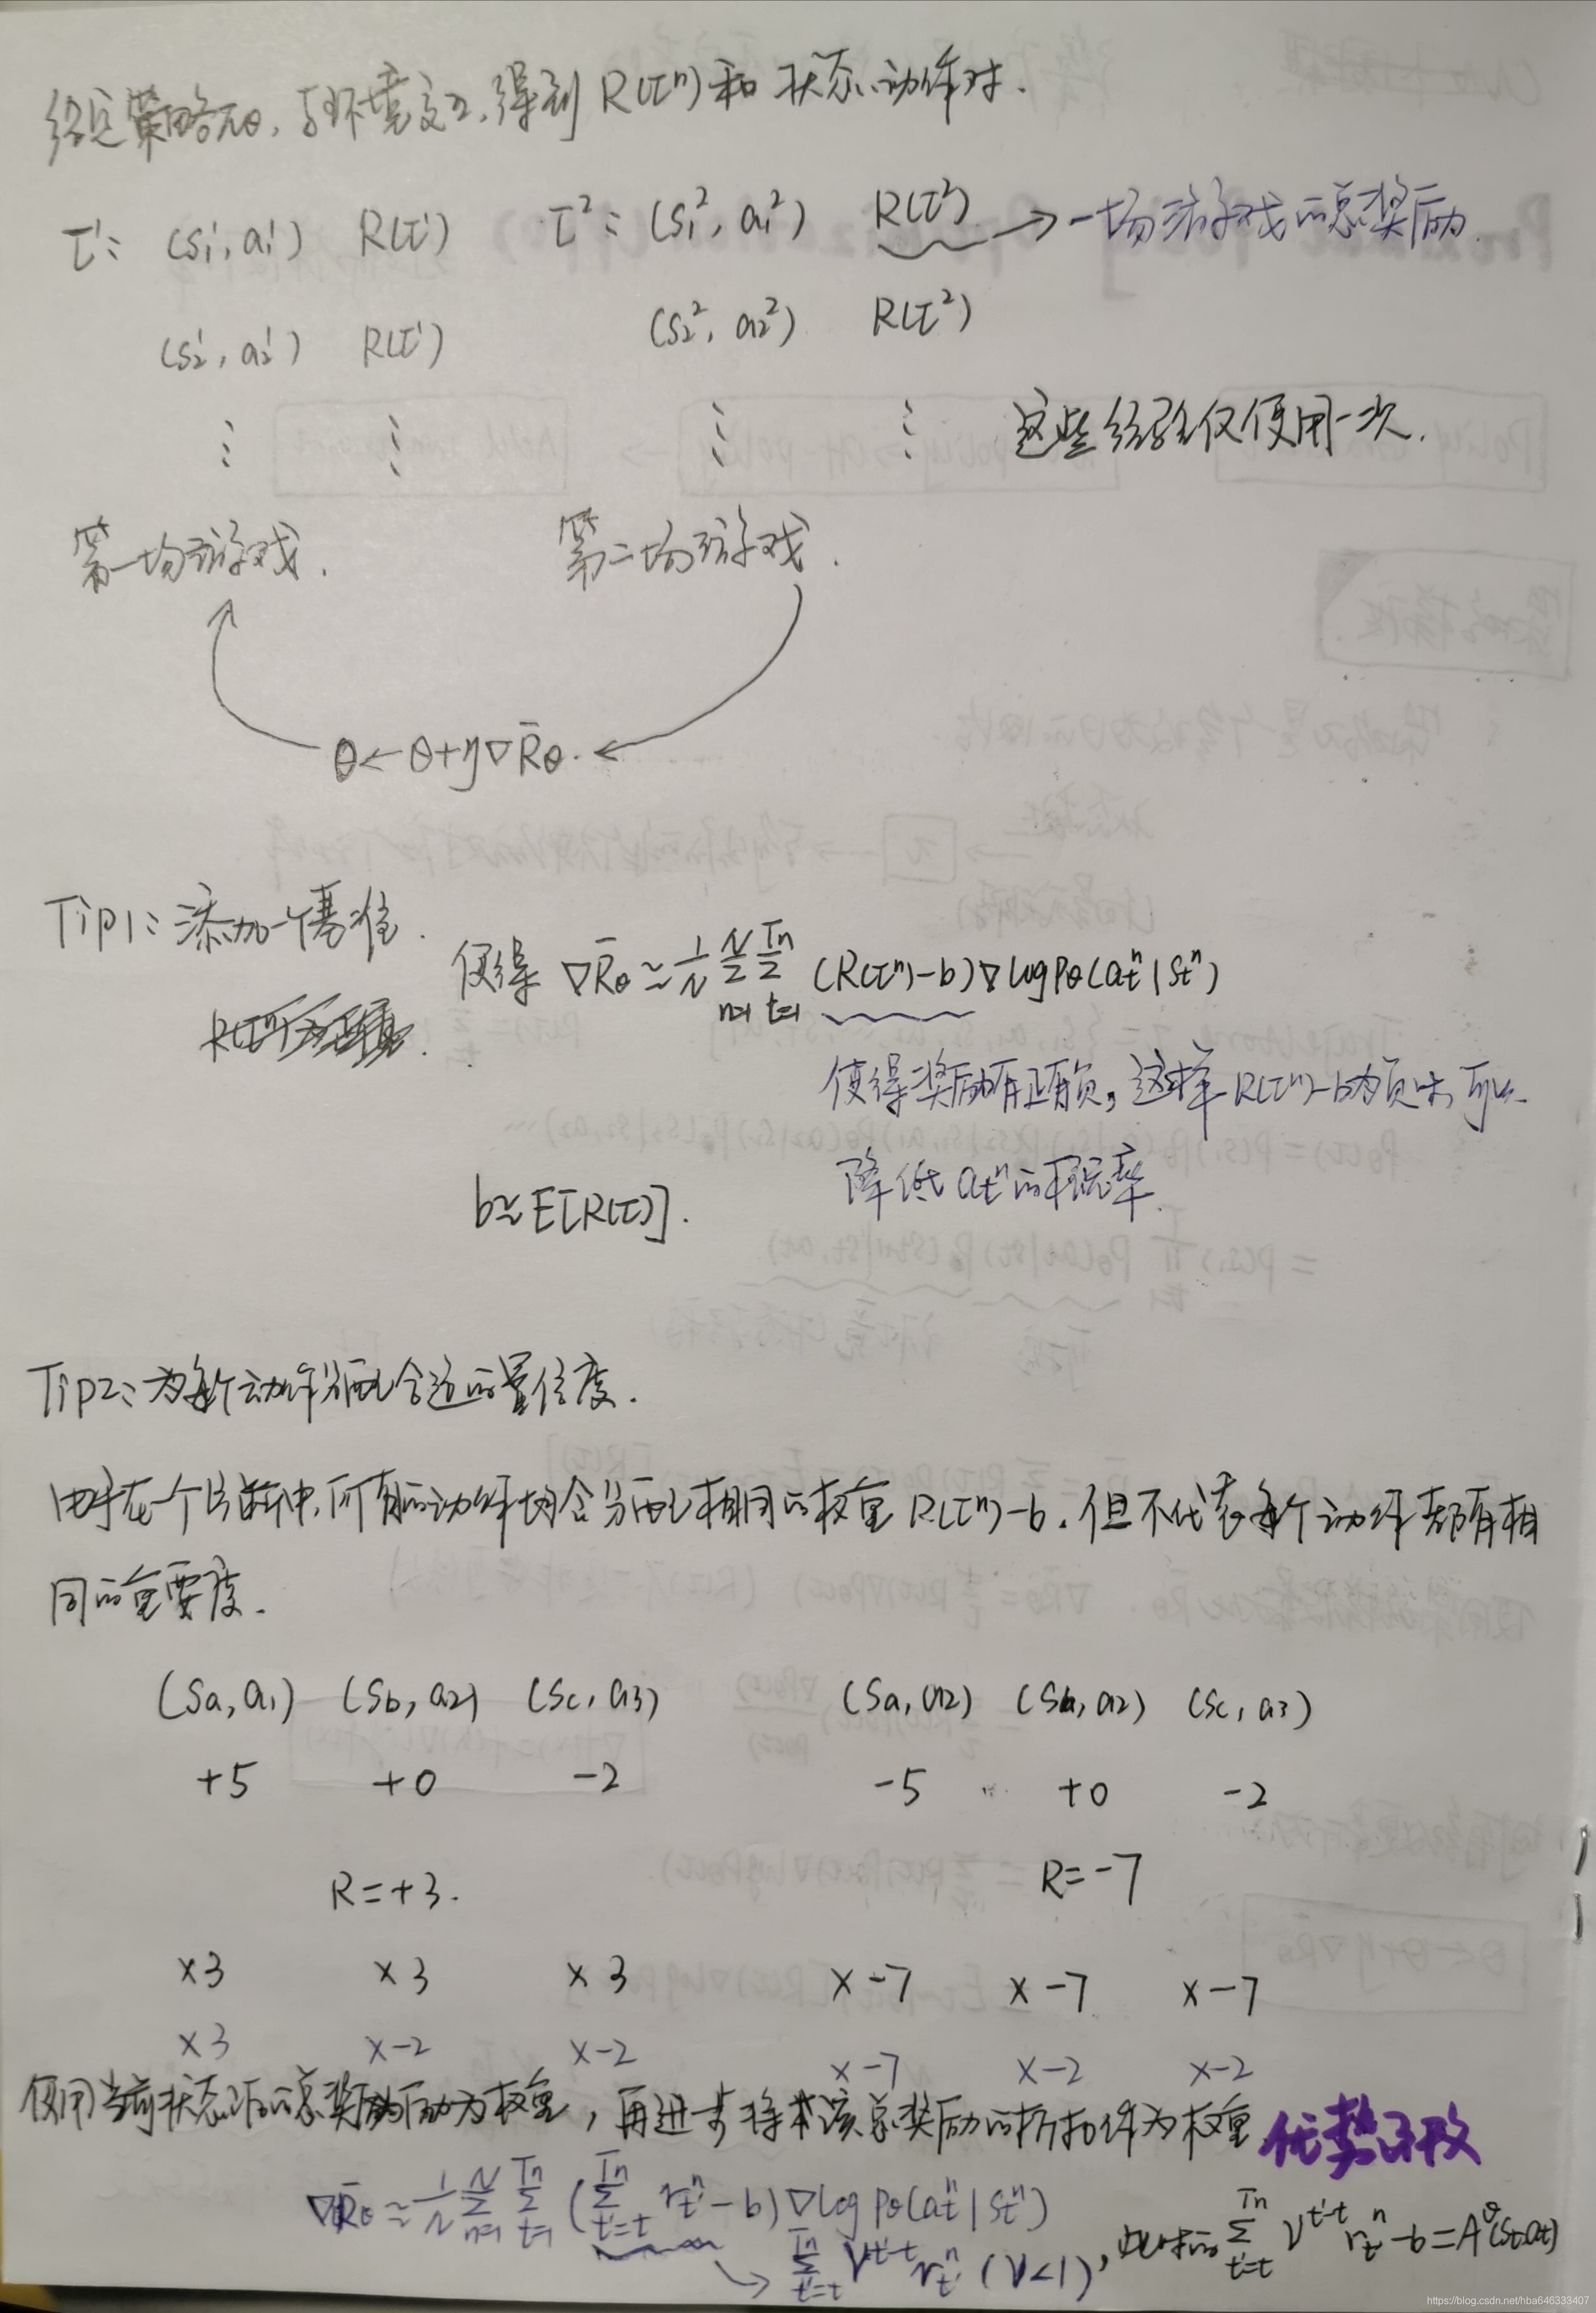 给定策略πθ, 与环境交互, 得到 R(τⁿ) 和 状态、动作对.
τ¹: (s₁¹, a₁¹) R(τ¹) τ²: (s₁², a₁²) R(τ²) → 一场游戏的总奖励.
(s₂¹, a₂¹) R(τ¹) (s₂², a₂²) R(τ²)
⋮ ⋮ ⋮ ⋮ 这些经验仅使用一次.
第一场游戏. 第二场游戏.
θ ← θ+η∇R̄θ.
Tip1: 添加一个基准.
使得 ∇R̄θ ≈ 1/N Σₙ₌₁ᴺ Σₜ₌₁ᵀⁿ (R(τⁿ)-b)∇logPθ(aₜⁿ|sₜⁿ)
使得奖励有正有负, 这样 R(τⁿ)-b为负时, 可以
降低 aₜⁿ的概率.
b≈E[R(τ)].
Tip2: 为每个动作分配合适的置信度.
由于在一个片断中, 所有的动作均会分配相同的权重 R(τⁿ)-b. 但不代表每个动作都有相
同的重要度.
(Sa, a₁) (Sb, a₂) (Sc, a₃) (Sa, a₂) (Sb, a₂) (Sc, a₃)
+5 +0 -2 -5 +0 -2
R=+3. R=-7
×3 ×3 ×3 ×-7 ×-7 ×-7
×3 ×-2 ×-2 ×-7 ×-2 ×-2
使用当前状态之后的总奖励为权重, 再进一步将该总奖励的折扣作为权重 优势函数
∇R̄θ ≈ 1/N Σₙ₌₁ᴺ Σₜ₌₁ᵀⁿ (Σₜ'₌ₜᵀⁿ rₜ'ⁿ - b)∇logPθ(aₜⁿ|sₜⁿ)
→ Σₜ'₌ₜᵀⁿ γᵗ'⁻ᵗ rₜ'ⁿ (γ<1), 此时的 Σₜ'₌ₜᵀⁿ γᵗ'⁻ᵗ rₜ'ⁿ - b = A^θ(sₜ,aₜ)
https://blog.csdn.net/hba646333407